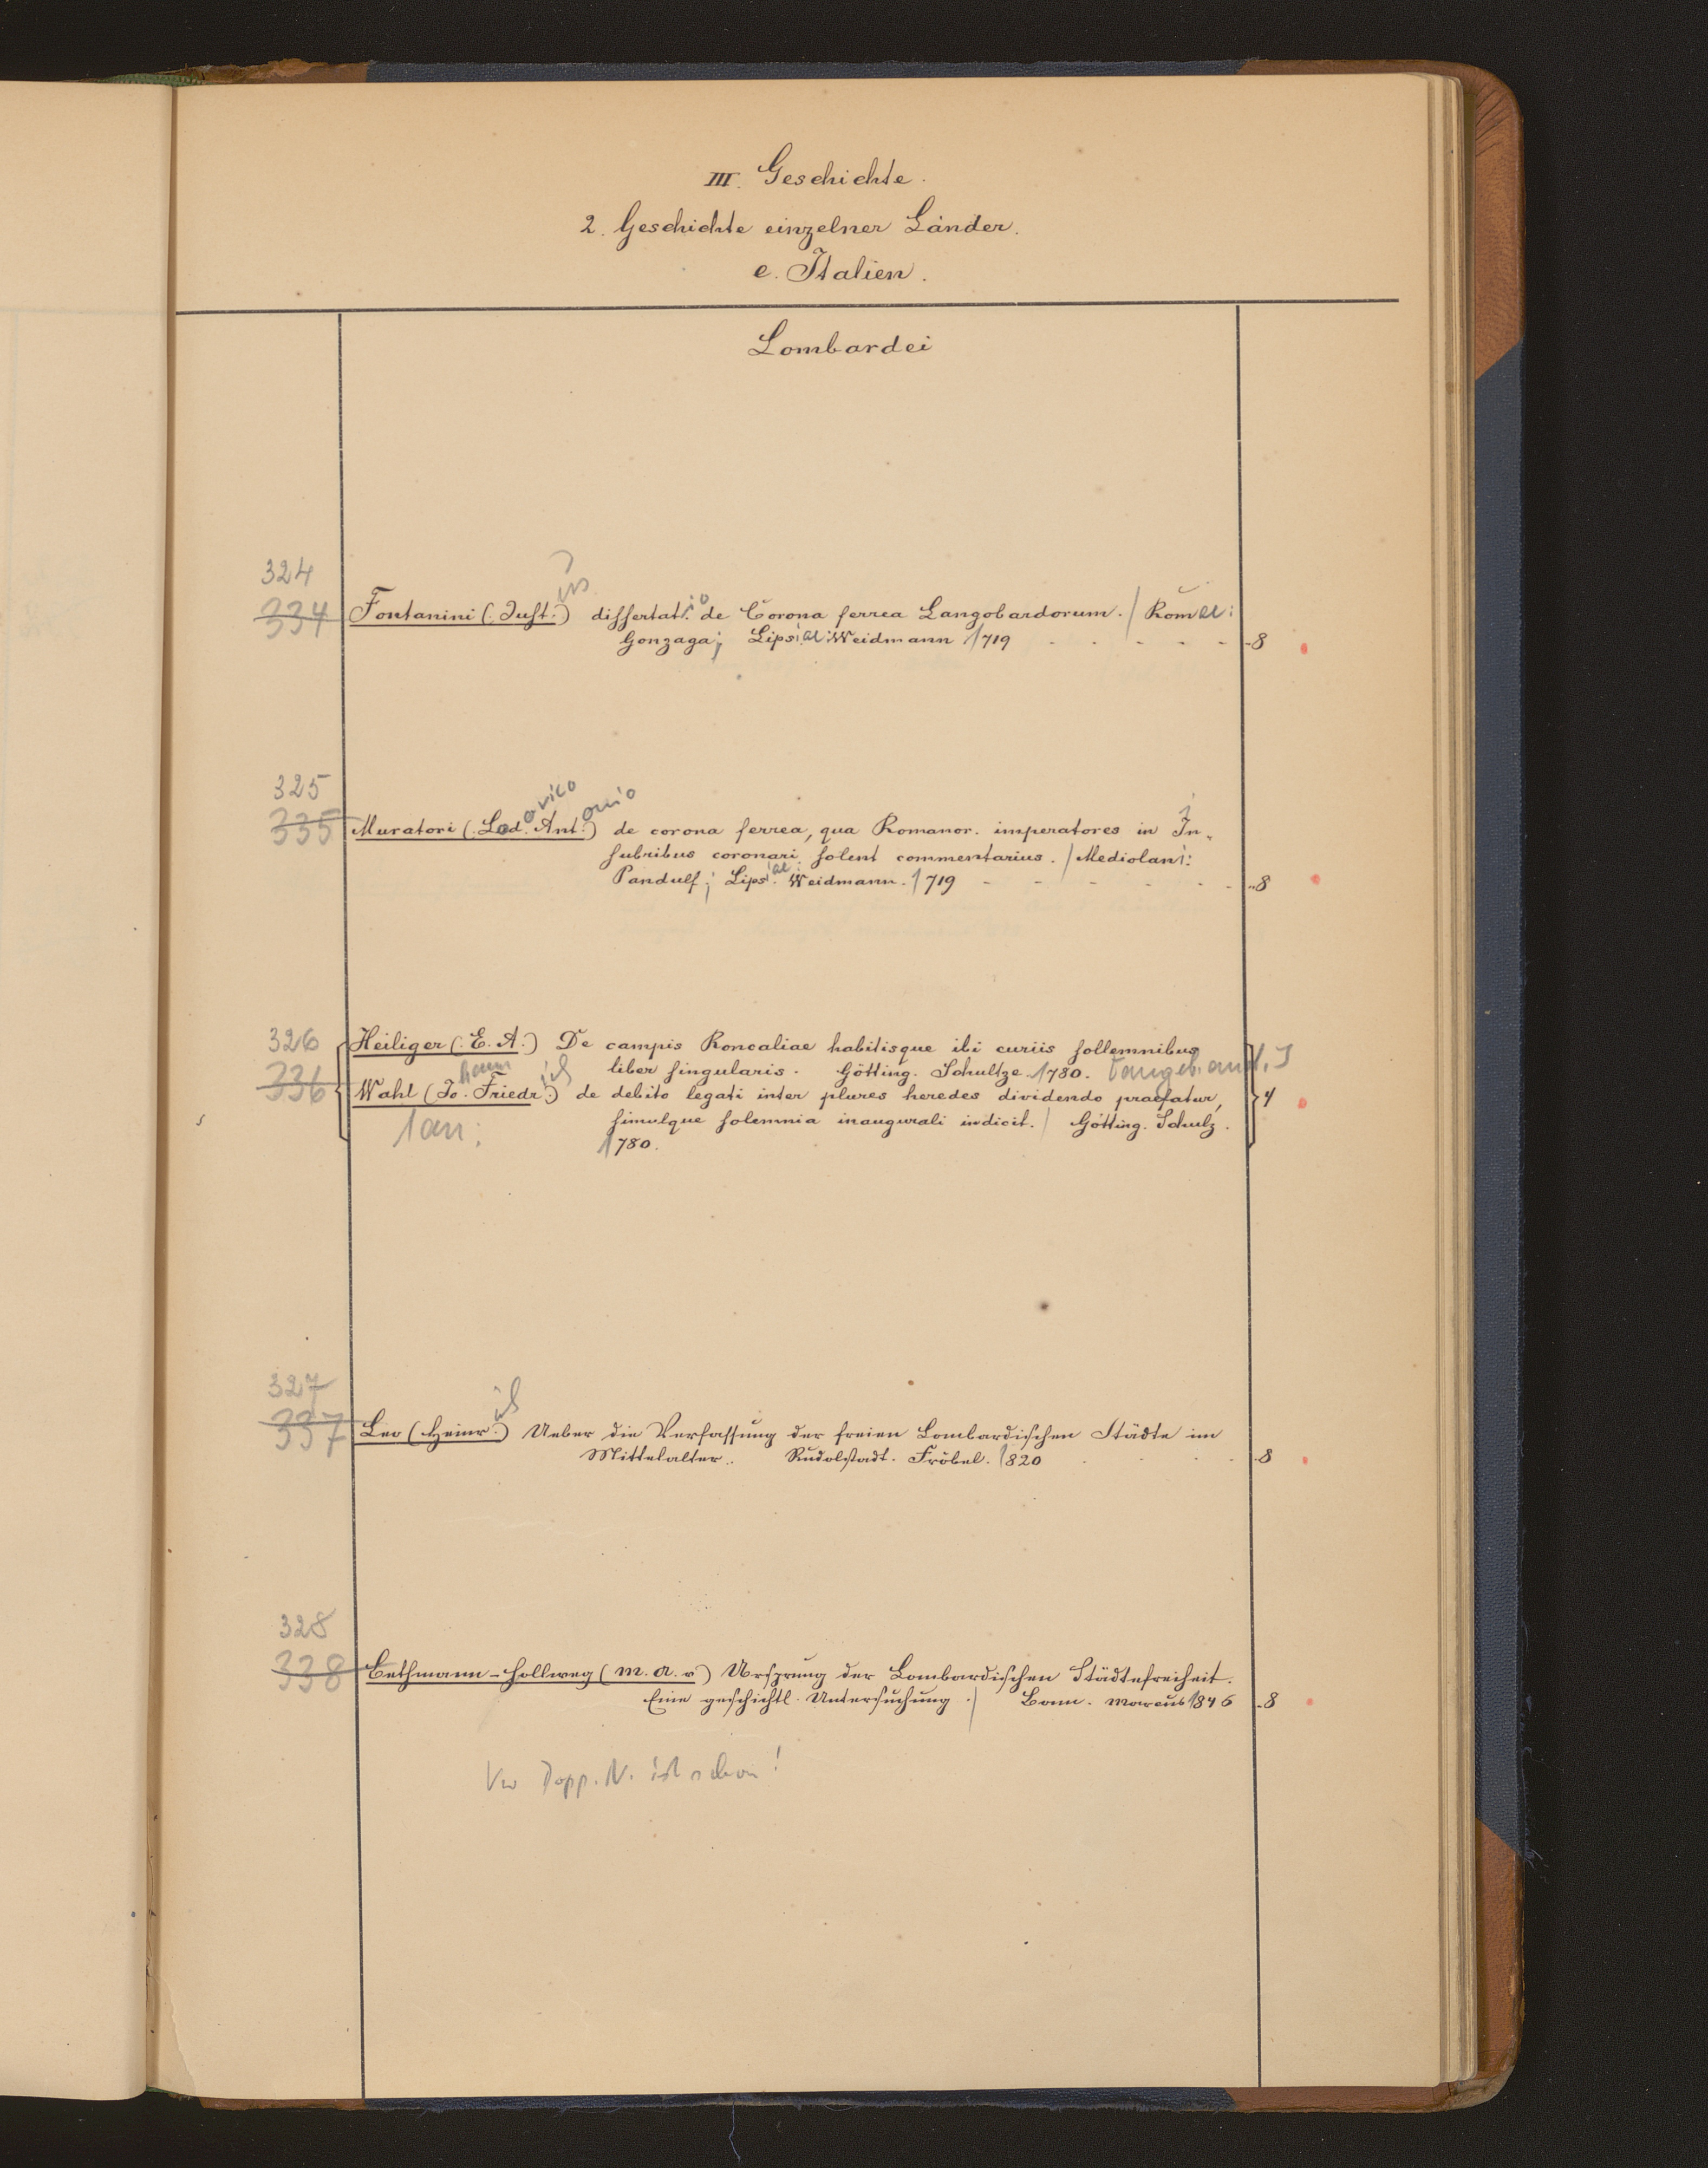 III. Geschichte.
2. Geschichte einzelner Länder.
e. Italien.
Lombardei
324
334 Fontanini (Just.us) dissertat.io de Corona ferrea Langobardorum. / Romae:
Gonzaga; Lipsiae: Weidmann 1719 - - - - - 8
325
335 Muratori (Lod.ovico Ant.onio) de corona ferrea, qua Romanor. imperatores in In-
subribus coronari solent commentarius. / Mediolani:
Pandulf; Lipsiae: Weidmann. 1719 - - - - - 8
326 Heiliger (E. A.) De campis Roncaliae habitisque ibi curiis sollemnibus
liber singularis. Götting. Schultze. 1780.
336 Wahl (Jo.hann Friedr.ich) de debito legati inter plures heredes dividendo praefatur, 4
simulque solemnia inaugurali indicit. / Götting. Schulz.
1 an:
1780.
327
337 Leo (Heinr.ich) Ueber die Verfassung der freien Lombardischen Städte im
Mittelalter. Rudolstadt. Fröbel. 1820 - 8
328
338 Bethmann-Hollweg (M. A. v) Ursprung der Lombardischen Städtefreiheit.
Eine geschichtl. Untersuchung. / Bonn. Marcus 1846 - 8
Dopp. N. ist schon!